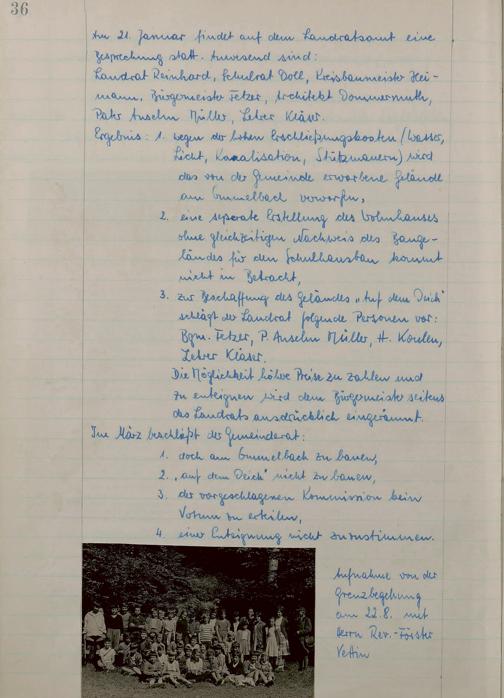 36
Am 21. Januar findet auf dem Landratsamt eine
Besprechung statt. Anwesend sind:
Landrat Reinhard, Schulrat Doll, Kreisbaumeister Hei-
mann, Bürgermeister Fetzer, Architekt Dommermuth,
Pater Anselm Müller, Lehrer Kläser.
Ergebnis: 1. wegen der hohen Erschließungskosten (Wasser,
Licht, Kanalisation, Stützmauern) wird
das von der Gemeinde erworbene Gelände
am Gummelbach verworfen,
2. eine separate Erstellung des Wohnhauses
ohne gleichzeitigen Nachweis des Bauge-
ländes für den Schulhausbau kommt
nicht in Betracht,
3. zur Beschaffung des Geländes „Auf dem Deich"
schlägt der Landrat folgende Personen vor:
Bgm. Fetzer, P. Anselm Müller, H.
Lehrer Kläser.
Die Möglichkeit höhere Preise zu zahlen und
zu enteignen wird dem Bürgermeister seitens
des Landrats ausdrücklich eingeräumt.
Im März beschließt der Gemeinderat:
1. doch am Gummelbach zu bauen,
2. „auf dem Deich" nicht zu bauen,
3. der vorgeschlagenen Kommission kein
Votum zu erteilen,
4. einer Enteignung nicht zuzustimmen.
Aufnahme von der
Grenzbegehung
am 22.8. mit
Herrn Rev.-Förster